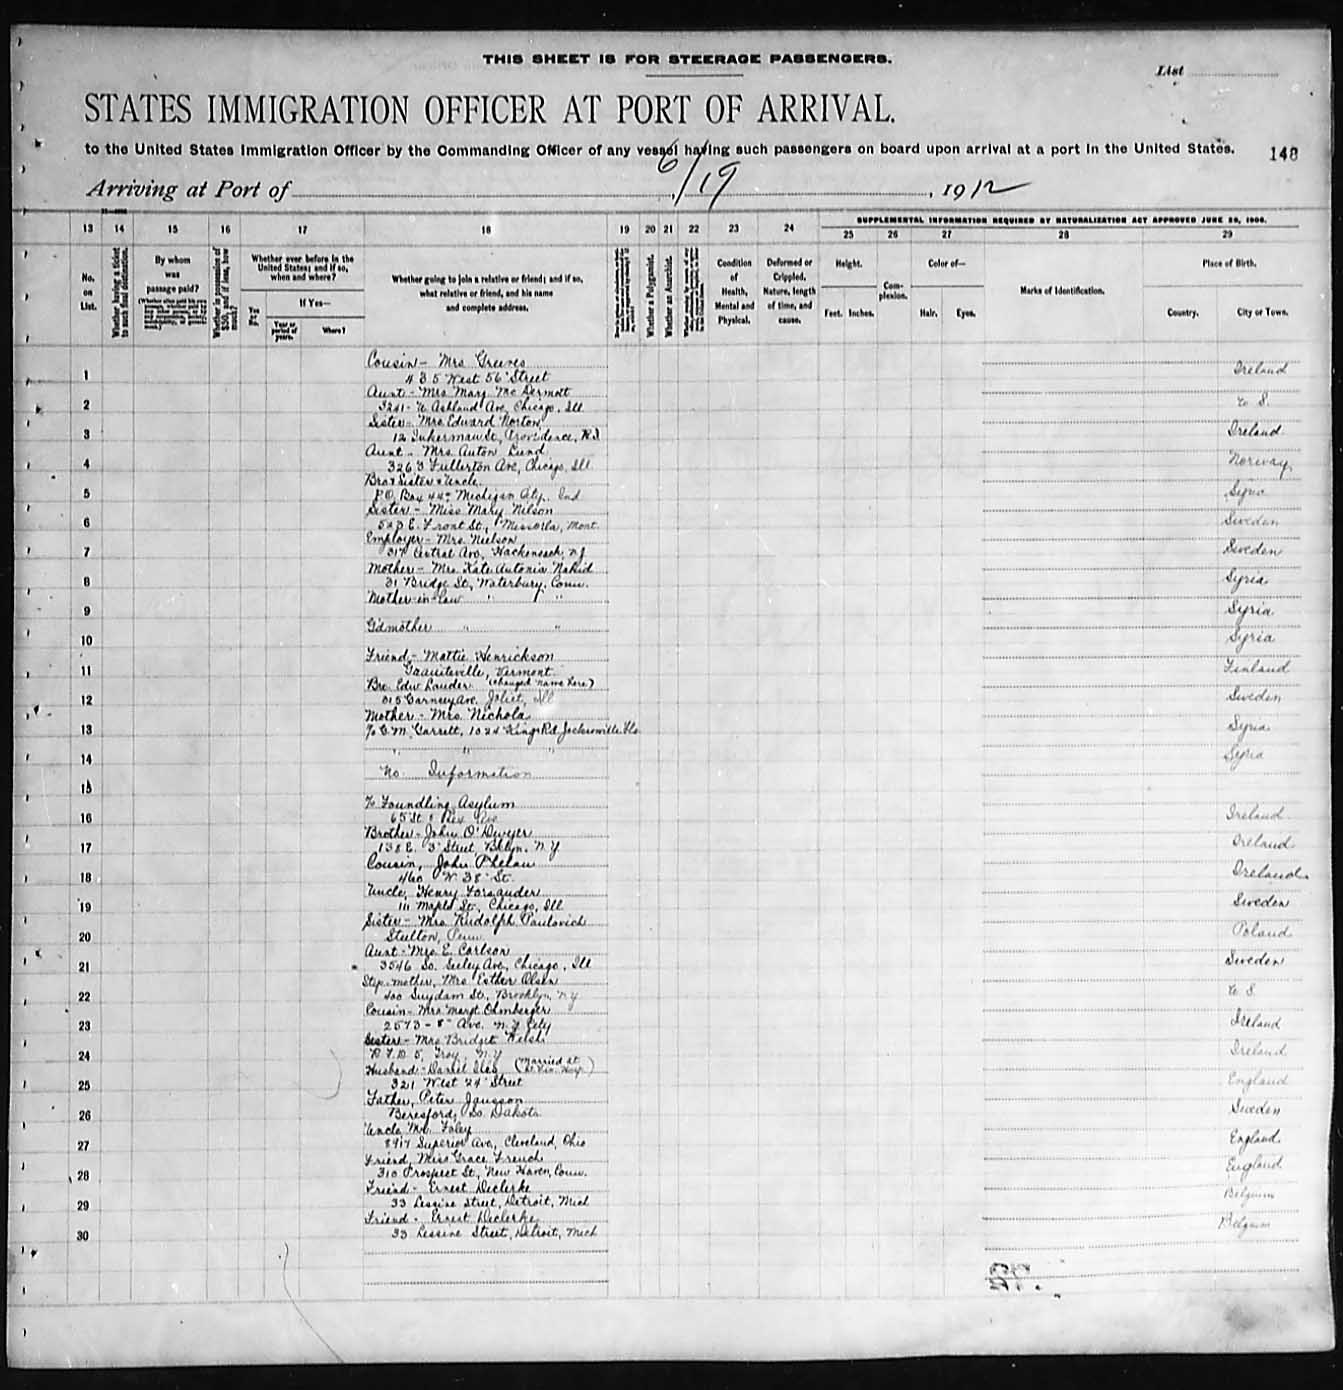 THIS SHEET IS FOR STEERAGE PASSENGERS.
List
STATES IMMIGRATION OFFICER AT PORT OF ARRIVAL.
to the United States Immigration Officer by the Commanding Officer of any vessel having such passengers on board upon arrival at a port in the United States.
148
Arriving at Port of 6/19, 1912
SUPPLEMENTAL INFORMATION REQUIRED BY NATURALIZATION ACT APPROVED JUNE 29, 1906.
13 14 15 16 17 18 19 20 21 22 23 24 25 26 27 28 29
No. on List.
Whether having a ticket to such final destination.
By whom was passage paid?
Whether in possession of $50, and if less, how much?
Whether ever before in the United States; and if so, when and where?
If Yes—
Year or period of years.
Where?
Whether going to join a relative or friend; and if so, what relative or friend, and his name and complete address.
Whether a Polygamist.
Whether an Anarchist.
Condition of Health, Mental and Physical.
Deformed or Crippled. Nature, length of time, and cause.
Height.
Feet. Inches.
Complexion.
Color of—
Hair. Eyes.
Marks of Identification.
Place of Birth.
Country. City or Town.
1 Cousin - Mrs Greeves
435 West 56 Street Ireland
2 Aunt - Mrs Mary McDermott
3241 - N Ashland Ave, Chicago, Ill U S.
3 Sister - Mrs Edward Norton
12 Inkerman St, Providence, R.I. Ireland
4 Aunt - Mrs. Anton Lund
3263 Fullerton Ave, Chicago, Ill Norway
5 Bro & Sister & Uncle
P.O. Box Michigan City, Ind Syria
6 Sister - Miss Mary Nilson
E. Front St., Missoula, Mont. Sweden
7 Employer - Mrs. Nielson
317 Central Ave, Hackensack, NJ Sweden
8 Mother - Mrs Kate Antonia Nakid
31 Bridge St, Waterbury, Conn. Syria
9 Mother-in-law " " Syria
10 Gdmother " " Syria
11 Friend - Mattie Henrickson
Graniteville, Vermont Finland
12 Bro Edw Lauder (changed name here)
Ave, Joliet, Ill Sweden
13 Mother - Mrs. Nichola
% C.M. Garrett, 1024 Kings Rd Jacksonville Fla Syria
14 " " " Syria
15 No Information
16 % Foundling Asylum
65 St & Lex Ave Ireland
17 Brother - John O'Dwyer
138 E. 3 Street, Bklyn, N.Y Ireland
18 Cousin, John Phelan
460 W. 38 St. Ireland
19 Uncle, Henry Forsander
111 Maple St, Chicago, Ill Sweden
20 Sister - Mrs Rudolph Paulovich
Steelton, Penn Poland
21 Aunt - Mrs. E. Carlson
3546 So. Seeley Ave, Chicago, Ill Sweden
22 Step-mother, Mrs Esther Olsen
400 Suydam St, Brooklyn, NY U S.
23 Cousin - Mrs Margt Ohmberger
2573 - 8" Ave. N.Y City Ireland
24 Sister - Mrs Bridget Welsh
R.F.D. 5, Troy, N.Y Ireland
25 Husband - Daniel (Married at St Vin. Hosp.)
321 West 24 Street England
26 Father, Peter Jansson
Beresford, So. Dakota Sweden
27 Uncle Mr. Foley
8917 Superior Ave, Cleveland, Ohio England
28 Friend, Miss Grace French
310 Prospect St, New Haven, Conn. England
29 Friend - Ernest Declerke
33 Lessine Street, Detroit, Mich Belgium
30 Friend - Ernest Declerke
33 Lessine Street, Detroit, Mich Belgium